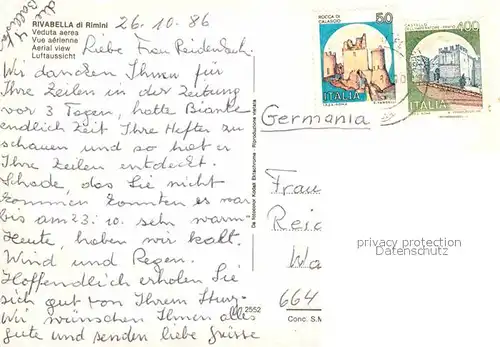 RIVABELLA di Rimini
Veduta aerea
Vue aérienne
Aerial view
Luftaussicht
26.10.86
Liebe Frau Reidenbach.
Wir dancken Ihnen für
Ihre Zeilen in der Zeitung
vor 3 Tagen, hatte
endlich Zeit Ihre Hefte zu
schauen und so hat er
Ihre Zeilen entdeckt.
Schade, das Sie nicht
kommen konnten es war
bis am 23.10. sehr warm
Heute, haben wir kalt.
Wind und Regen.
Hoffendlich erholen Sie
sich gut von Ihrem Sturz.
Wir wünschen Ihnen alles
gute und senden liebe Grüsse
ROCCA DI
CALASCIO
50
ITALIA
400
ITALIA
Germania
Frau
Reid
Wa
664
privacy protection
Datenschutz
2552
Conc. S.M